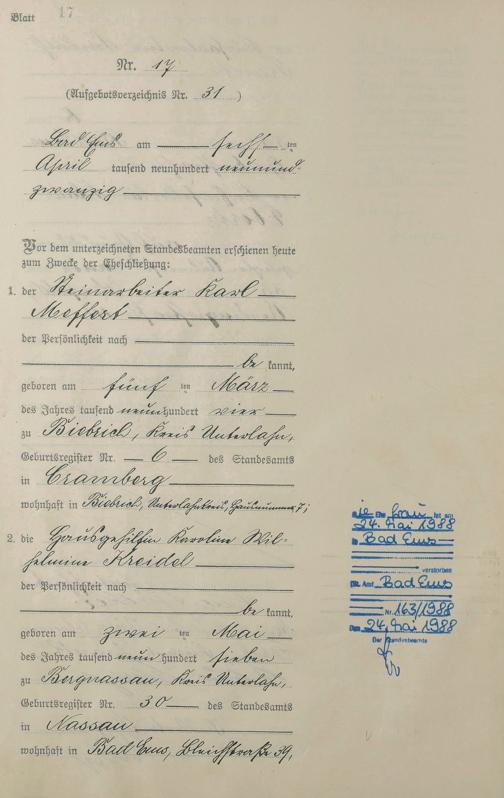 Blatt 17
Nr. 17
(Aufgebotsverzeichnis Nr. 31)
Bad Ems am sechs ten
April tausend neunhundert neunund-
zwanzig
Vor dem unterzeichneten Standesbeamten erschienen heute
zum Zwecke der Eheschließung:
1. der Steinarbeiter Karl
Meffert
der Persönlichkeit nach
be kannt,
geboren am fünf ten März
des Jahres tausend neunhundert vier
zu Biebrich, Kreis Unterlahn,
Geburtsregister Nr. 6 des Standesamts
in Cramberg
wohnhaft in Biebrich, Unterlahnkreis, Hausnummer 7;
2. die Hausgehilfin Karoline Wil-
helmine Kreidel
der Persönlichkeit nach
be kannt,
geboren am zwei ten Mai
des Jahres tausend neun hundert sieben
zu Bergnassau, Kreis Unterlahn,
Geburtsregister Nr. 30 des Standesamts
in Nassau
wohnhaft in Bad Ems, Bleichstraße 39,
Die Ehefrau ist am
24. Mai 1988
in Bad Ems
verstorben
St. Amt Bad Ems
Nr. 163/1988
Den 24. Mai 1988
Der Standesbeamte